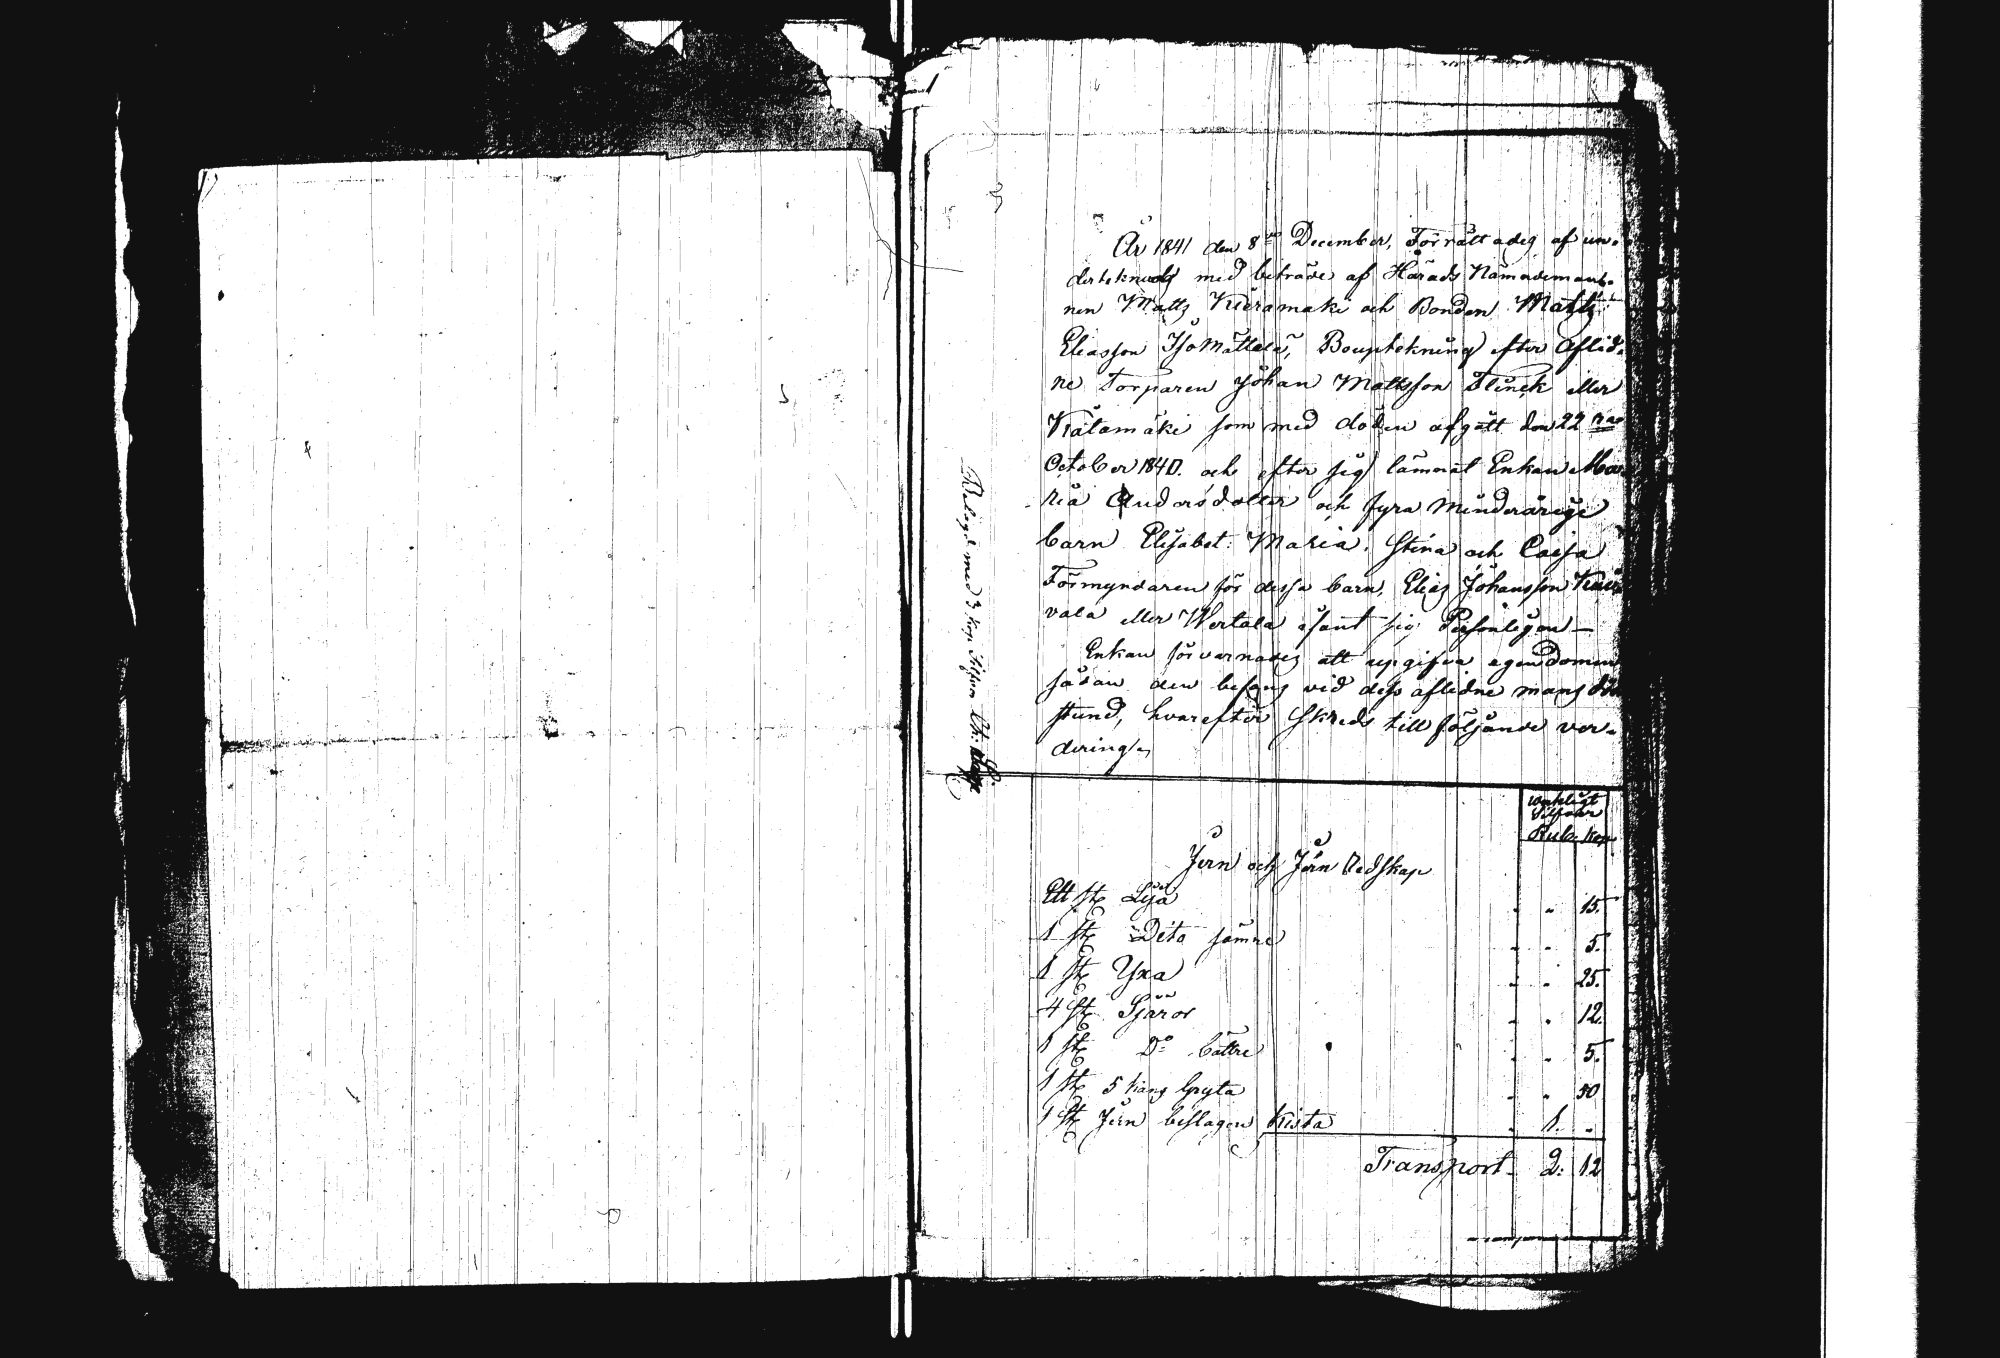 År 1841 den 8de December, Förrättadeş af un-
derteknad med beträde af Härads Nämndeman-
nen Matts Kieramäki och Bonden Matts
Eliasson IsoMattala, Bouptekning efter Aflid-
ne Torparen Johan Mattsson Flinck eller
Kätamäki som med döden afgått den 22
October 1840. och efter sig lämnat Enkan Ma-
ria Andersdotter och fyra Minderårige
barn Elisabet: Maria. Stina och Caisa
Förmyndaren för dessa barn, Elias Johansson
vala eller Wertala Personligen —
Enkan förvarnades att upgifva egendomen
sådan den befans vid dess aflidne mans
stund, hvarefter skreds till följande ver-
dering
Belagd med 3 kop. Silfver Ch:
werkligt
Silfver
Rub. Kop.
Jern och Jern Redskap
Ett st Lija " " 15.
1 st Dito sämre " " 5.
1 st Yxa " " 25.
4 st Skäror " " 12.
1 st Do bättre " " 5.
1 st 5 kans Gryta " " 50
1 st Jern beslagen Kista " 1. "
Transport 2: 12